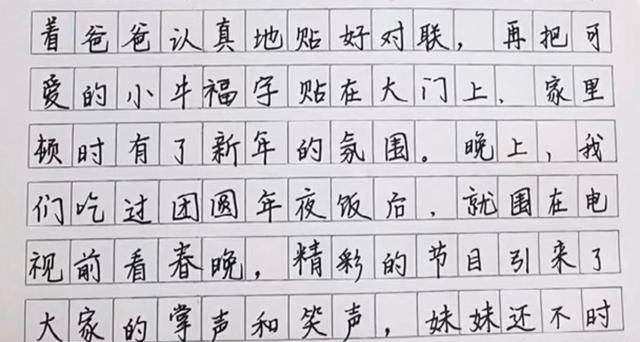 着爸爸认真地贴好对联，再把可
爱的小牛福字贴在大门上，家里
顿时有了新年的氛围。晚上，我
们吃过团圆年夜饭后，就围在电
视前看春晚，精彩的节目引来了
大家的掌声和笑声，妹妹还不时